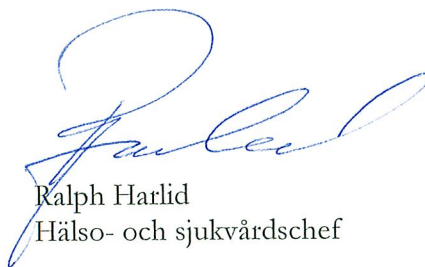 Ralph Harlid
Hälso- och sjukvårdschef